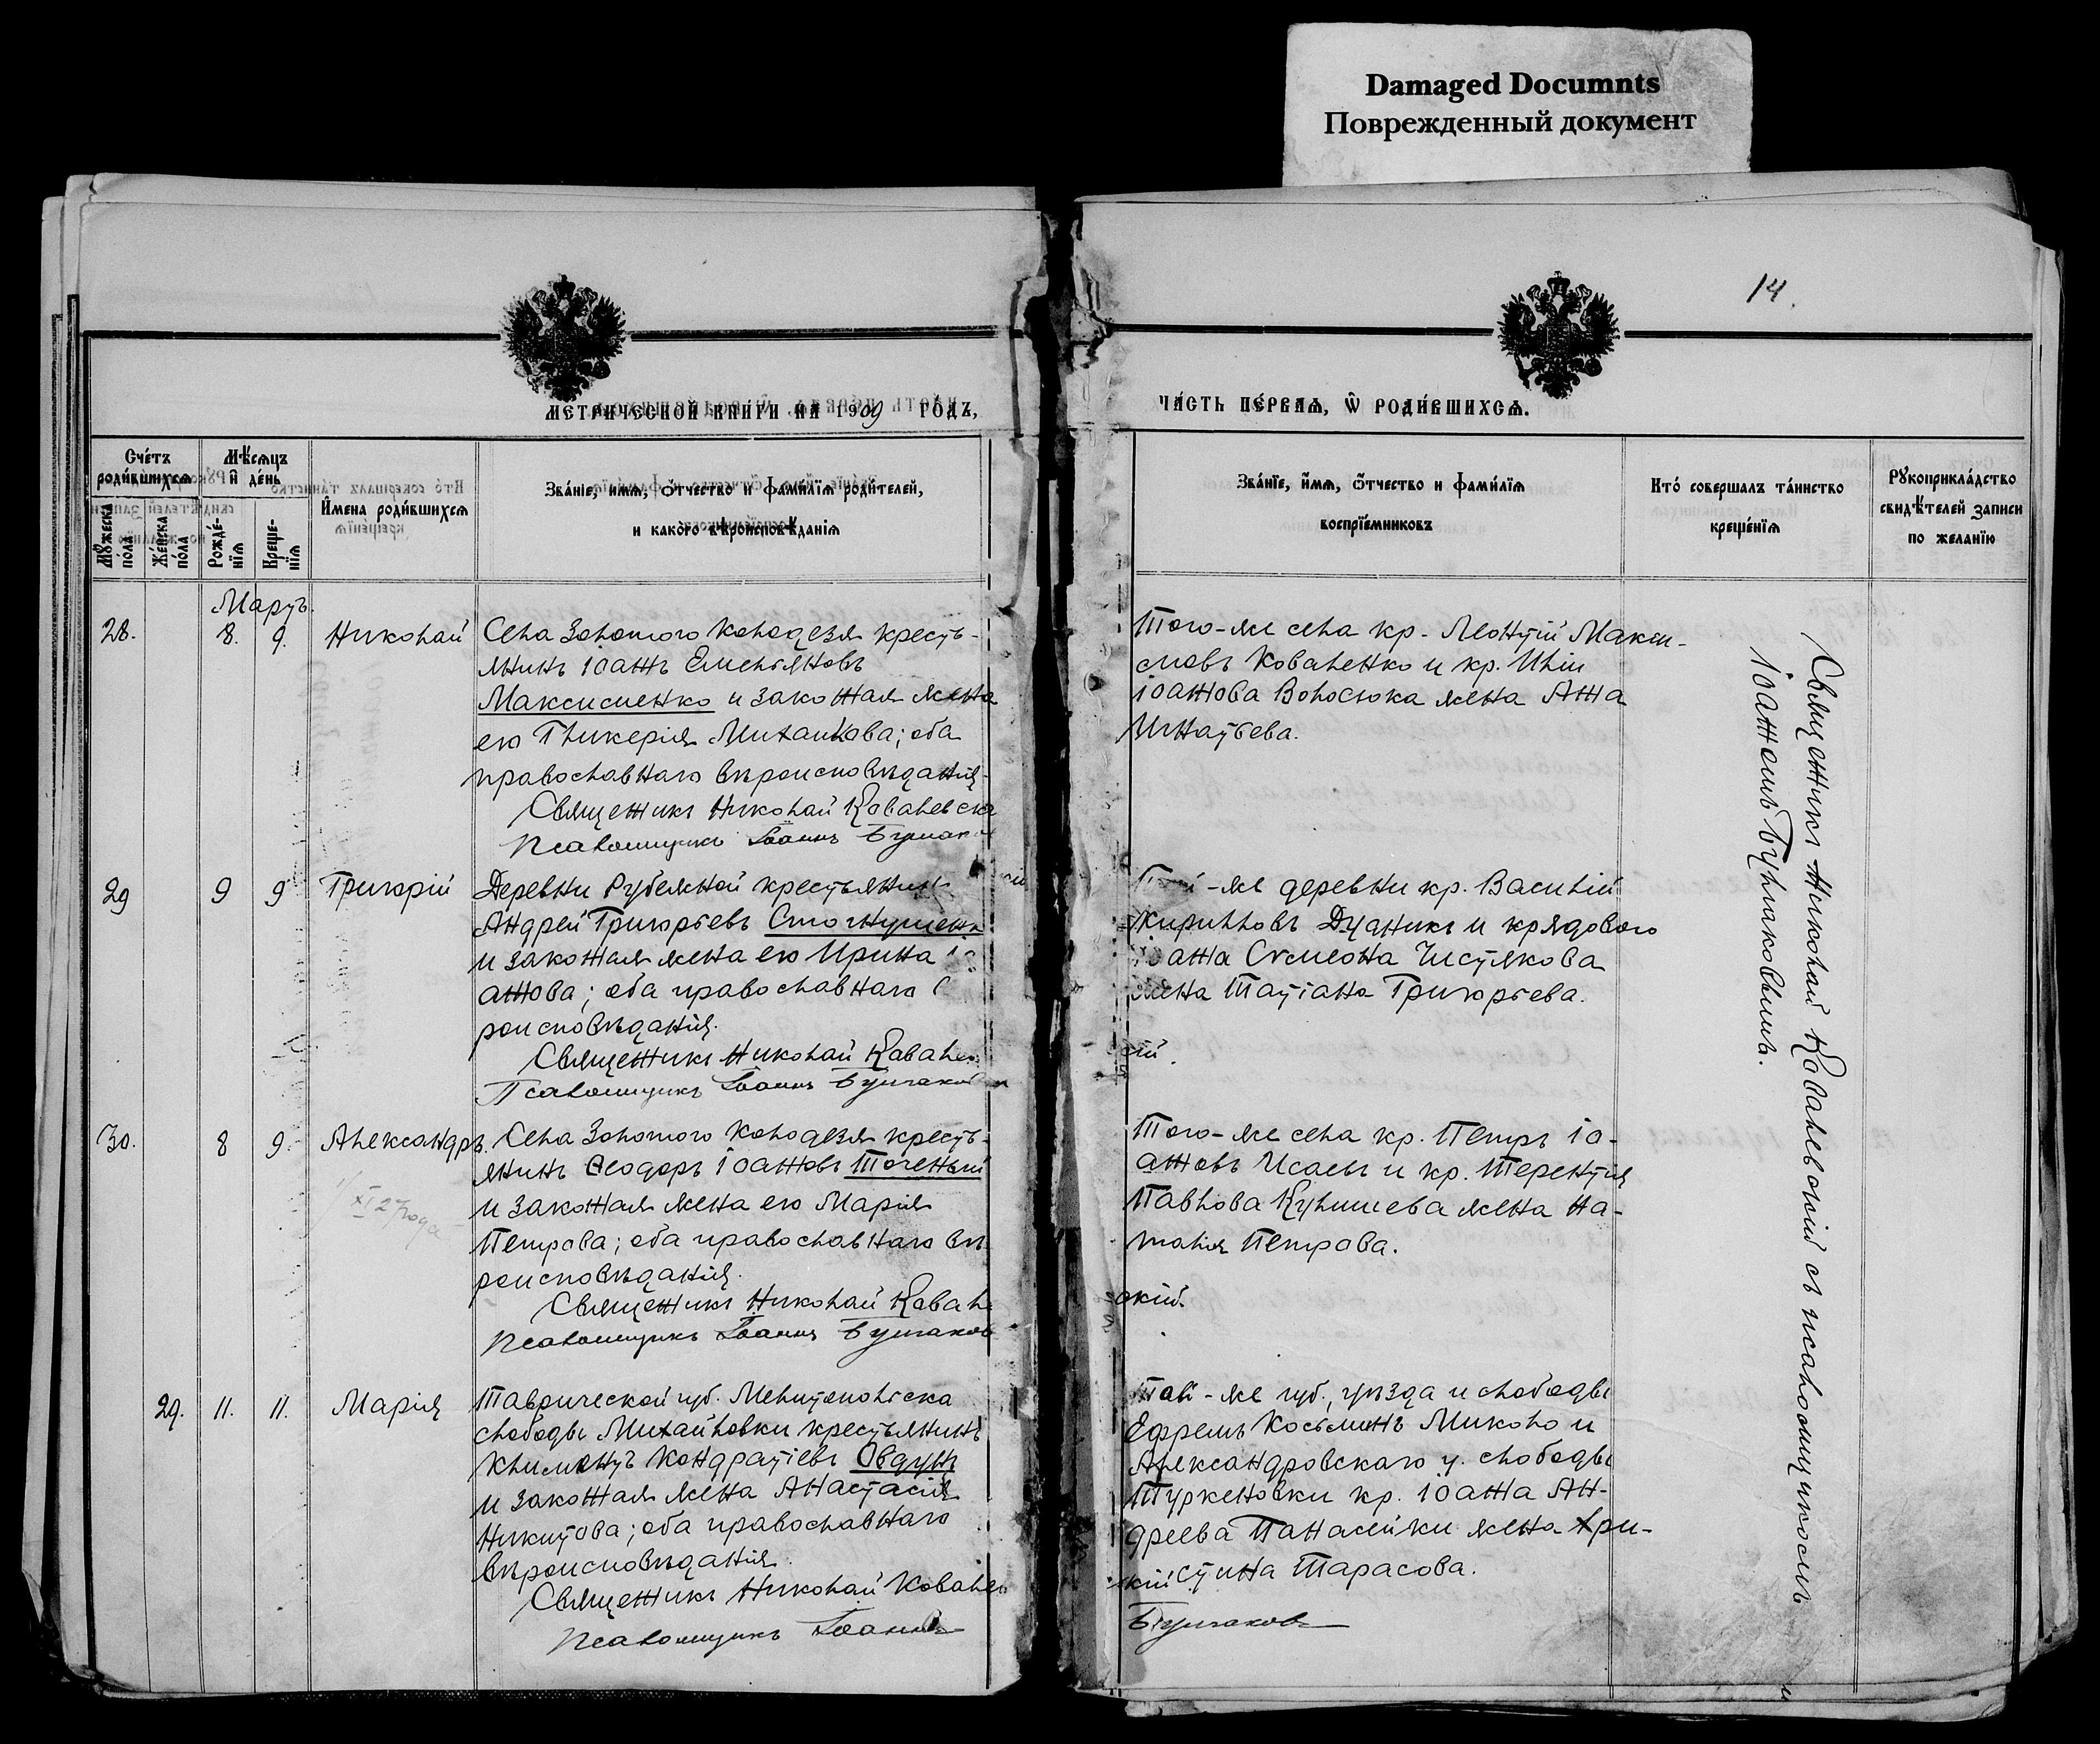 Damaged Documnts
Поврежденный документ
14.
МЕТРИЧЕСКОЙ КНИГИ НА 1909 ГОДЪ,
ЧАСТЬ ПЕРВАЯ, Ѡ РОДИВШИХСЯ.
Счетъ родившихся
Мѣсяцъ и день
Имена родившихся
Званіе, имя, отчество и фамилія родителей,
и какого вѣроисповѣданія
Мужеска пола
Женска пола
Рожденія
Крещенія
Званіе, имя, отчество и фамилія
воспріемниковъ
Кто совершалъ таинство
крещенія
Рукоприкладство
свидѣтелей записи
по желанію
Мартъ.
28. 8. 9. Николай
Села Золотого Колодезя кресть-
янинъ Іоаннъ Емельяновъ
Максименко и законная жена
его Гликерія Михаилова; оба
православнаго вѣроисповѣданія.
Священникъ Николай Ковалевскій
Псаломщикъ Іоаннъ Булгаковъ
Того-же села кр. Леонтій Макси-
мовъ Коваленко и кр. Иліи
Іоаннова Волосюка жена Анна
Игнатьева.
29 9 9 Григорій
Деревни Рубежной крестьянинъ
Андрей Григорьевъ
и законная жена его Ирина Іо-
аннова; оба православнаго
роисповѣданія.
Священникъ Николай Ковалев
скій.
Псаломщикъ Іоаннъ Булгаковъ
Той-же деревни кр. Василій
Кирилловъ Дудникъ и кр
Симеона Чистякова
жена Татіана Григорьева.
30. 8 9. Александръ.
1/XI 27 года
Села Золотого Колодезя кресть-
янинъ Ѳеодоръ Іоанновъ Точеный
и законная жена его Марія
Петрова; оба православнаго вѣ-
роисповѣданія.
Священникъ Николай Ковалев
скій.
Псаломщикъ Іоаннъ Булгаковъ
Того-же села кр. Петръ Іо-
анновъ Исаевъ и кр. Терентія
Павлова Кулишева жена На-
талія Петрова.
29. 11. 11. Марія
Таврической губ. Мелитопольска
слободы Михайловки крестьянинъ
Климентъ Кондратіевъ Овдунъ
и законная жена Анастасія
Никитова; оба православнаго
вѣроисповѣданія.
Священникъ Николай Ковалев
скій
Псаломщикъ Іоаннъ
Булгаковъ
Той-же губ., уѣзда и слободы
Ефремъ Косьминъ Миколо и
Александровскаго у. слободы
Туркеновки кр. Іоанна Ан-
дреева Панасейки жена Хри-
стина Тарасова.
Священникъ Николай Ковалевскій съ псаломщикомъ
Іоанномъ Булгаковымъ.